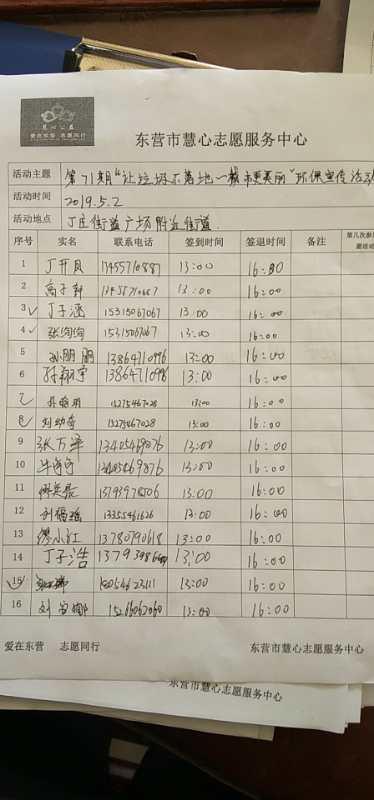 慧心公益
爱在东营 志愿同行
东营市慧心志愿服务中心
活动主题 第71期"让垃圾不落地一城市更美丽"环保宣传活动
活动时间 2019.5.2
活动地点 丁庄街道广场附近街道
序号 实名 联系电话 签到时间 签退时间 备注 第几次参
1 丁开良 13455710887 13:00 16:00
2 13:00 16:00
3 丁子涵 15315067067 13:00 16:00
4 张绚绚 15315067067 13:00 16:00
5 孙朋朋 13864710996 13:00 16:00
6 13864710996 13:00 16:00
7 15275467028 13:00 16:00
8 15275467028 13:00 16:00
9 张万泽 13405469876 13:00 16:00
10 13405469876 13:00 16:00
11 13793978506 13:00 16:00
12 刘福瑶 13355461626 13:00 16:00
13 缪小红 13780790618 13:00 16:00
14 丁子浩 13:00 16:00
15 13:00 16:00
16 刘 15266062060 13:00 16:00
爱在东营 志愿同行 东营市慧心志愿服务中心
东营市慧心志愿服务中心